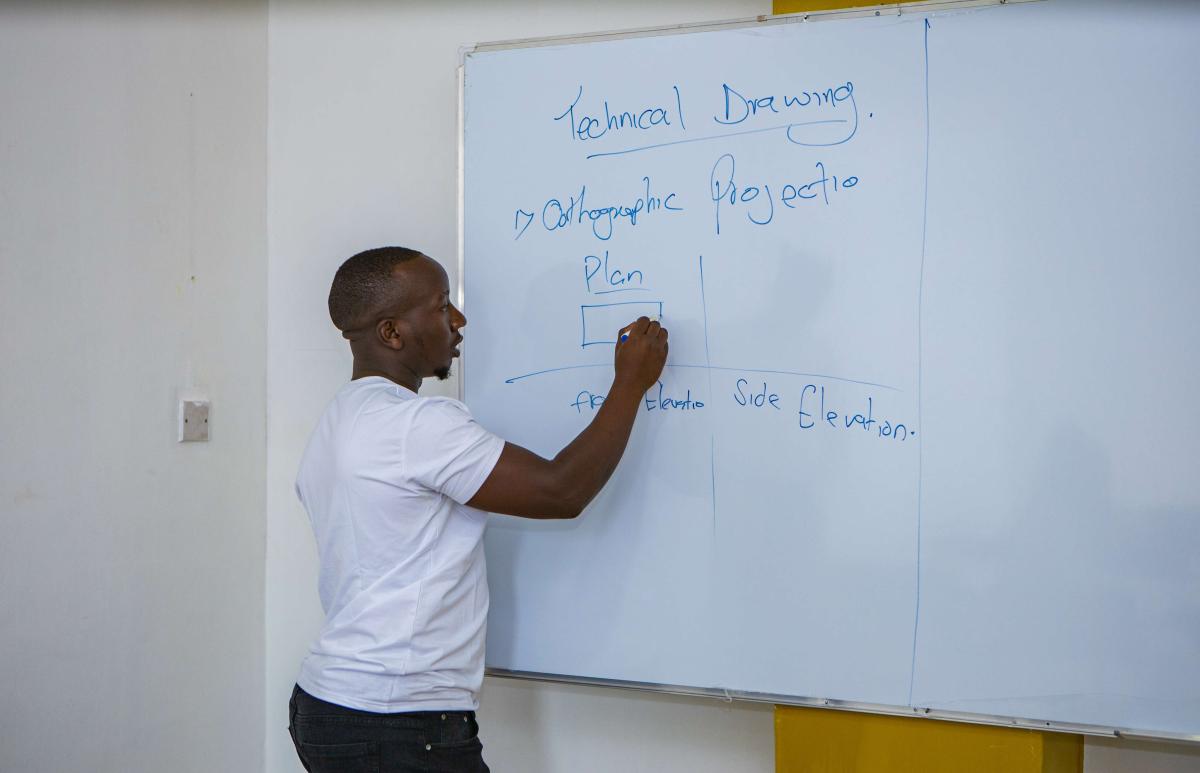 Technical Drawing.
1> Orthographic Projectio
Plan
Elevatio Side Elevation.